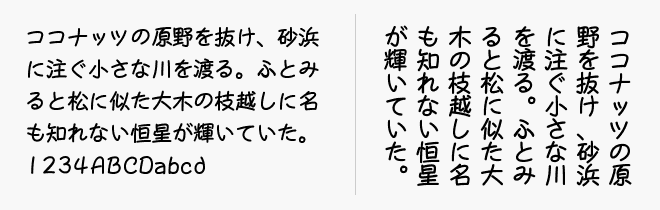 ココナッツの原野を抜け、砂浜
に注ぐ小さな川を渡る。ふとみ
ると松に似た大木の枝越しに名
も知れない恒星が輝いていた。
1234ABCDabcd
ココナッツの原
野を抜け、砂浜
に注ぐ小さな川
を渡る。ふとみ
ると松に似た大
木の枝越しに名
も知れない恒星
が輝いていた。